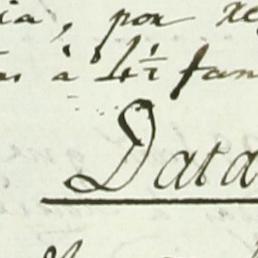 ia, por
à 4½ fan
Data